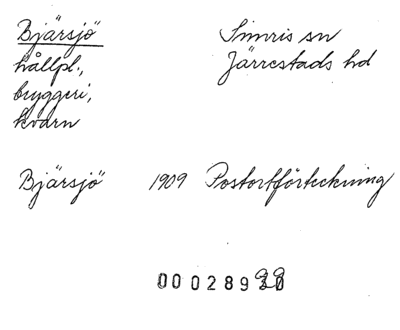 Bjärsjö Simris sn
hållpl., Järrestads hd
bryggeri,
kvarn
Bjärsjö 1909 Postortförteckning